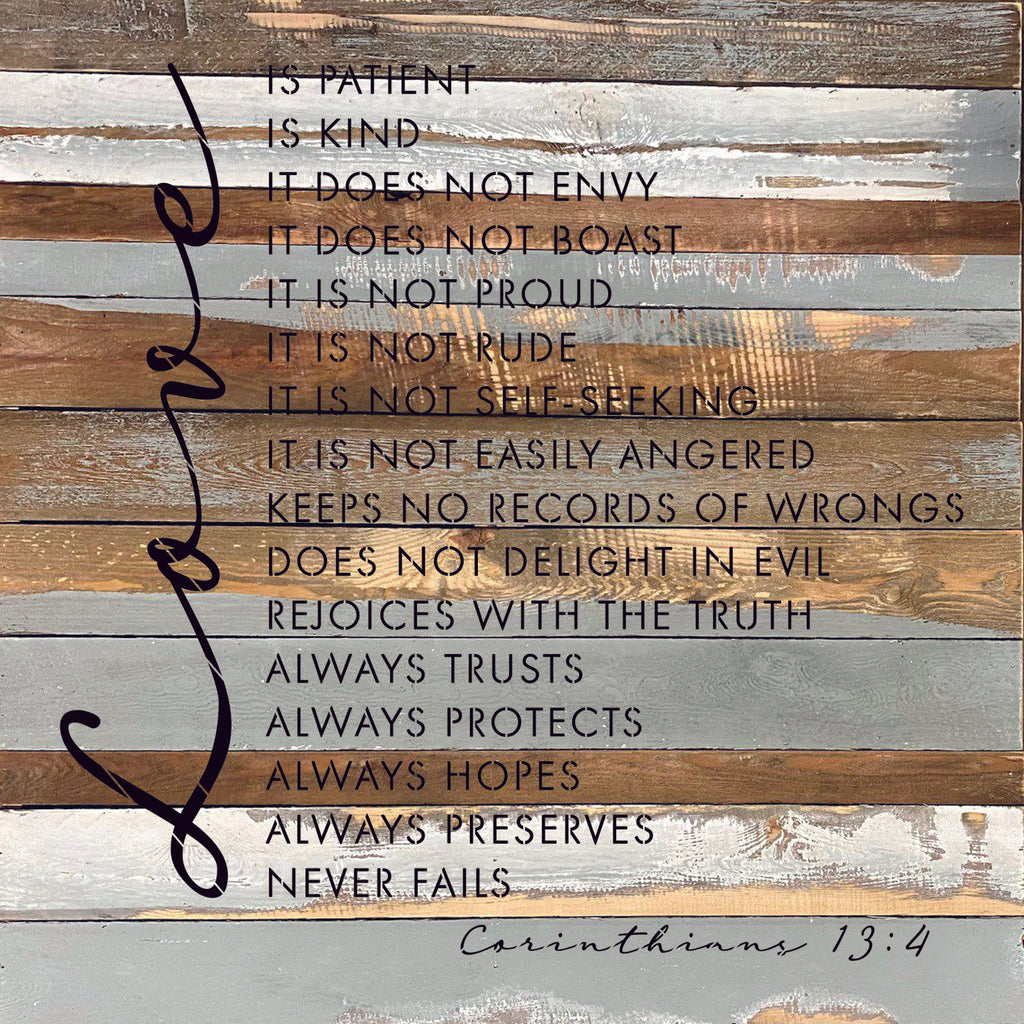 Love
IS PATIENT
IS KIND
IT DOES NOT ENVY
IT DOES NOT BOAST
IT IS NOT PROUD
IT IS NOT RUDE
IT IS NOT SELF-SEEKING
IT IS NOT EASILY ANGERED
KEEPS NO RECORDS OF WRONGS
DOES NOT DELIGHT IN EVIL
REJOICES WITH THE TRUTH
ALWAYS TRUSTS
ALWAYS PROTECTS
ALWAYS HOPES
ALWAYS PRESERVES
NEVER FAILS
Corinthians 13:4